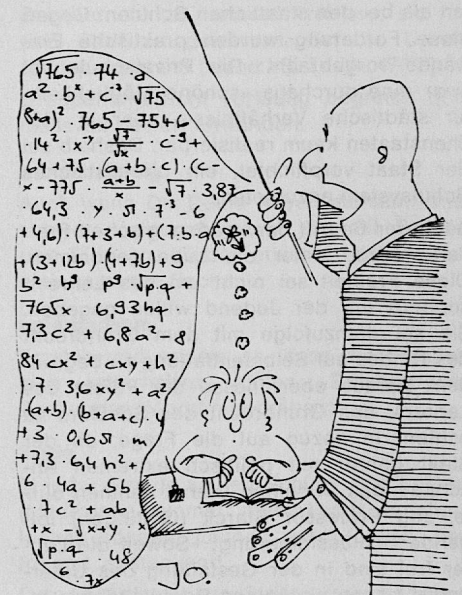 √765 · 74 · a
a² · b^x + c⁻⁷ √75
(8+a) · 765 - 754+6
· 14⁷ · x⁷ √7/√x · c⁻⁹
(64+75 · (a+b · c) · (c-
x - 775 a+b - √7 · 3,87
· 64,3 · y · 51 · 7⁻³ · 6
+ 4,6) · (7+3-b) + (7.b -
+ (3+12b) · (a+7b) + 9
b² · h⁹ · p⁹ √p.q. +
765x · 6,93hq
7,3c² + 6,8a² - 8
84 cx² + 6cxy + h²
· 7 · 3,6xy² + a²
(a+b) · (b+a+c) · y
+ 3 · 0,651 m
+ 7,3 · 6,4h² +
6 · 4a + 5b
· 7c² + ab
+x - √x+y · x
√p.q · 48
6 7x